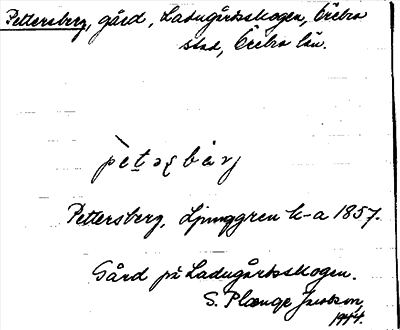 Pettersberg, gård, Ladugårdsskogen, Örebro
stad, Örebro län.
Pettersberg, Ljunggren k-a 1857.
Gård på Ladugårdsskogen.
S. Plænge Jacobson
1944.